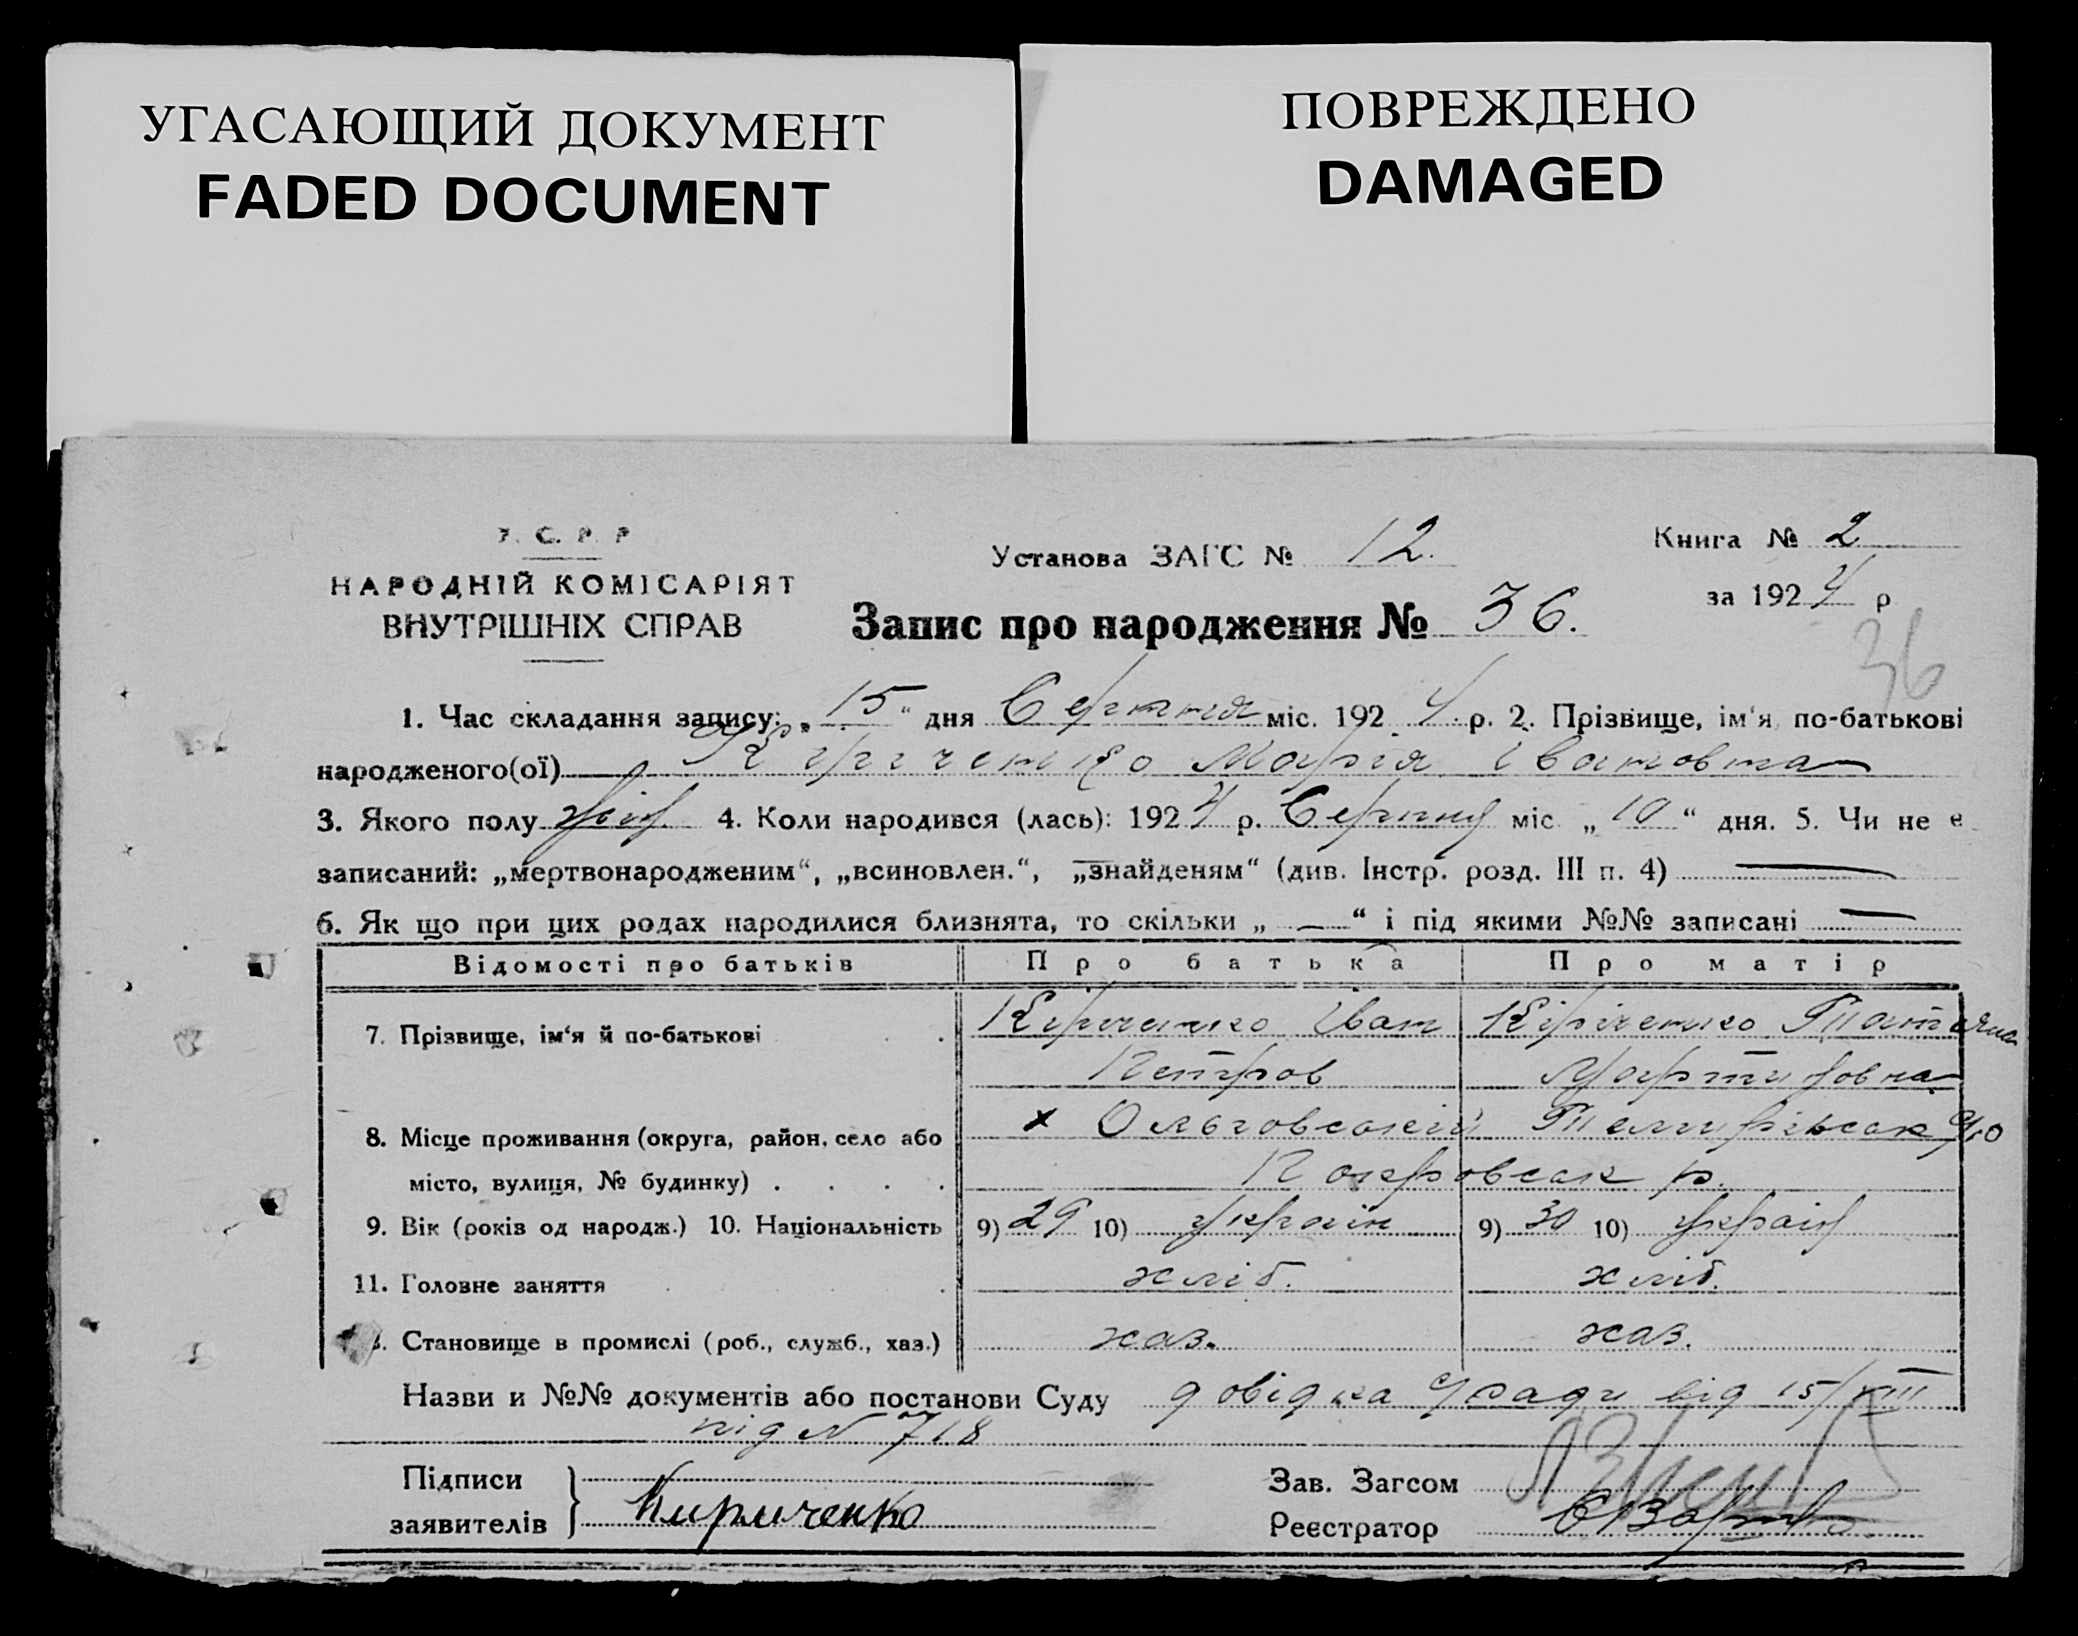 УГАСАЮЩИЙ ДОКУМЕНТ
FADED DOCUMENT
ПОВРЕЖДЕНО
DAMAGED
У. С. Р. Р
НАРОДНІЙ КОМІСАРІЯТ
ВНУТРІШНІХ СПРАВ
Установа ЗАГС № 12.
Книга № 2
за 1924 р
Запис про народження № 36.
36
1. Час складання запису: „ 15 “ дня Серпня міс. 192 4 р. 2. Прізвище, ім‘я по-батькові
народженого(ої) Кіріченко Марія Івановна
3. Якого полу жін. 4. Коли народився (лась): 192 4 р. Серпня міс. „ 10 “ дня. 5. Чи не е
записаний: „мертвонародженим“, „всиновлен.“, „знайденям“ (див. Інстр. розд. III п. 4) —
6. Як що при цих родах народилися близнята, то скільки „ — “ і під якими №№ записані —
Відомості про батьків Про батька Про матір
7. Прізвище, ім‘я й по-батькові . . Кіріченко Іван Кіріченко Татяна
Петров Мартиновна
8. Місце проживання (округа, район, село або х Ольговський
місто, вулиця, № будинку) . . . . Покровськ р.
9. Вік (років од народж.) 10. Національність 9) 29 10) україн 9) 30 10) україн
11. Головне заняття . . . хліб. хліб.
. Становище в промислі (роб., служб., хаз.) хаз. хаз.
Назви и №№ документів або постанови Суду довідка с/ради від 15/VIII
під N 718
Підписи
заявителів } Кириченко
Зав. Загсом
Реєстратор